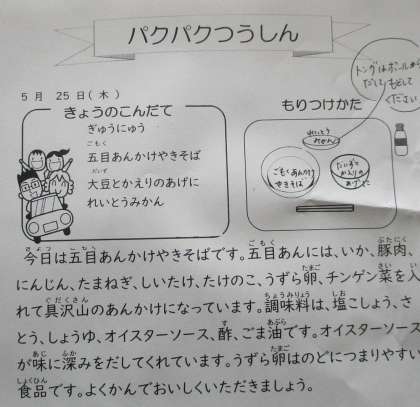 パクパクつうしん
5月 25日(木)
きょうのこんだて
ぎゅうにゅう
五目あんかけやきそば
大豆とかえりのあげに
れいとうみかん
もりつけかた
トングはボールから
だして もどして
ください
れいとう
みかん
ごもくあんかけ
やきそば
だいずと
かえりの
あげに
今日は五目あんかけやきそばです。五目あんには、いか、豚肉、
にんじん、たまねぎ、しいたけ、たけのこ、うずら卵、チンゲン菜を入
れて具沢山のあんかけになっています。調味料は、塩こしょう、さ
とう、しょうゆ、オイスターソース、酢、ごま油です。オイスターソース
が味に深みをだしてくれています。うずら卵はのどにつまりやすい
食品です。よくかんでおいしくいただきましょう。